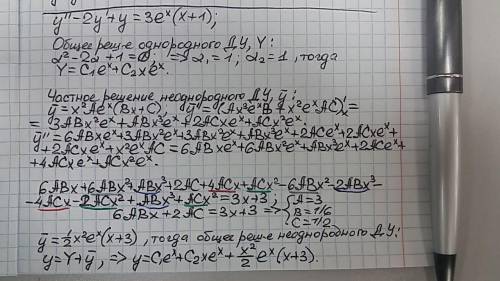 y'' - 2y' + y = 3eˣ(x+1);
Общее реш-е однородного Д.У., Y:
α² - 2α + 1 = 0; => α₁ = 1; α₂ = 1, тогда
Y = C₁eˣ + C₂xeˣ.
Частное решение неоднородного Д.У., ȳ:
ȳ = x²Aeˣ(Bx+C),
= 3ABx²eˣ + ABx³eˣ + 2ACxeˣ + ACx²eˣ.
ȳ'' = 6ABxeˣ + 3ABx²eˣ + 3ABx²eˣ + ABx³eˣ + 2ACeˣ + 2ACxeˣ +
+ 2ACxeˣ + x²eˣAC = 6ABxeˣ + 6ABx²eˣ + ABx³eˣ + 2ACeˣ +
+ 4ACxeˣ + ACx²eˣ.
6ABx + 6ABx² + ABx³ + 2AC + 4ACx + ACx² - 6ABx² - 2ABx³ -
- 4ACx - 2ACx² + ABx³ + ACx² = 3x + 3; { A = 3
6ABx + 2AC = 3x + 3 => B = 1/6
C = 1/2
ȳ = ½x²eˣ(x+3), тогда общее реш-е неоднородного Д.У.:
y = Y + ȳ, => y = C₁eˣ + C₂xeˣ + x²/2 eˣ(x+3).